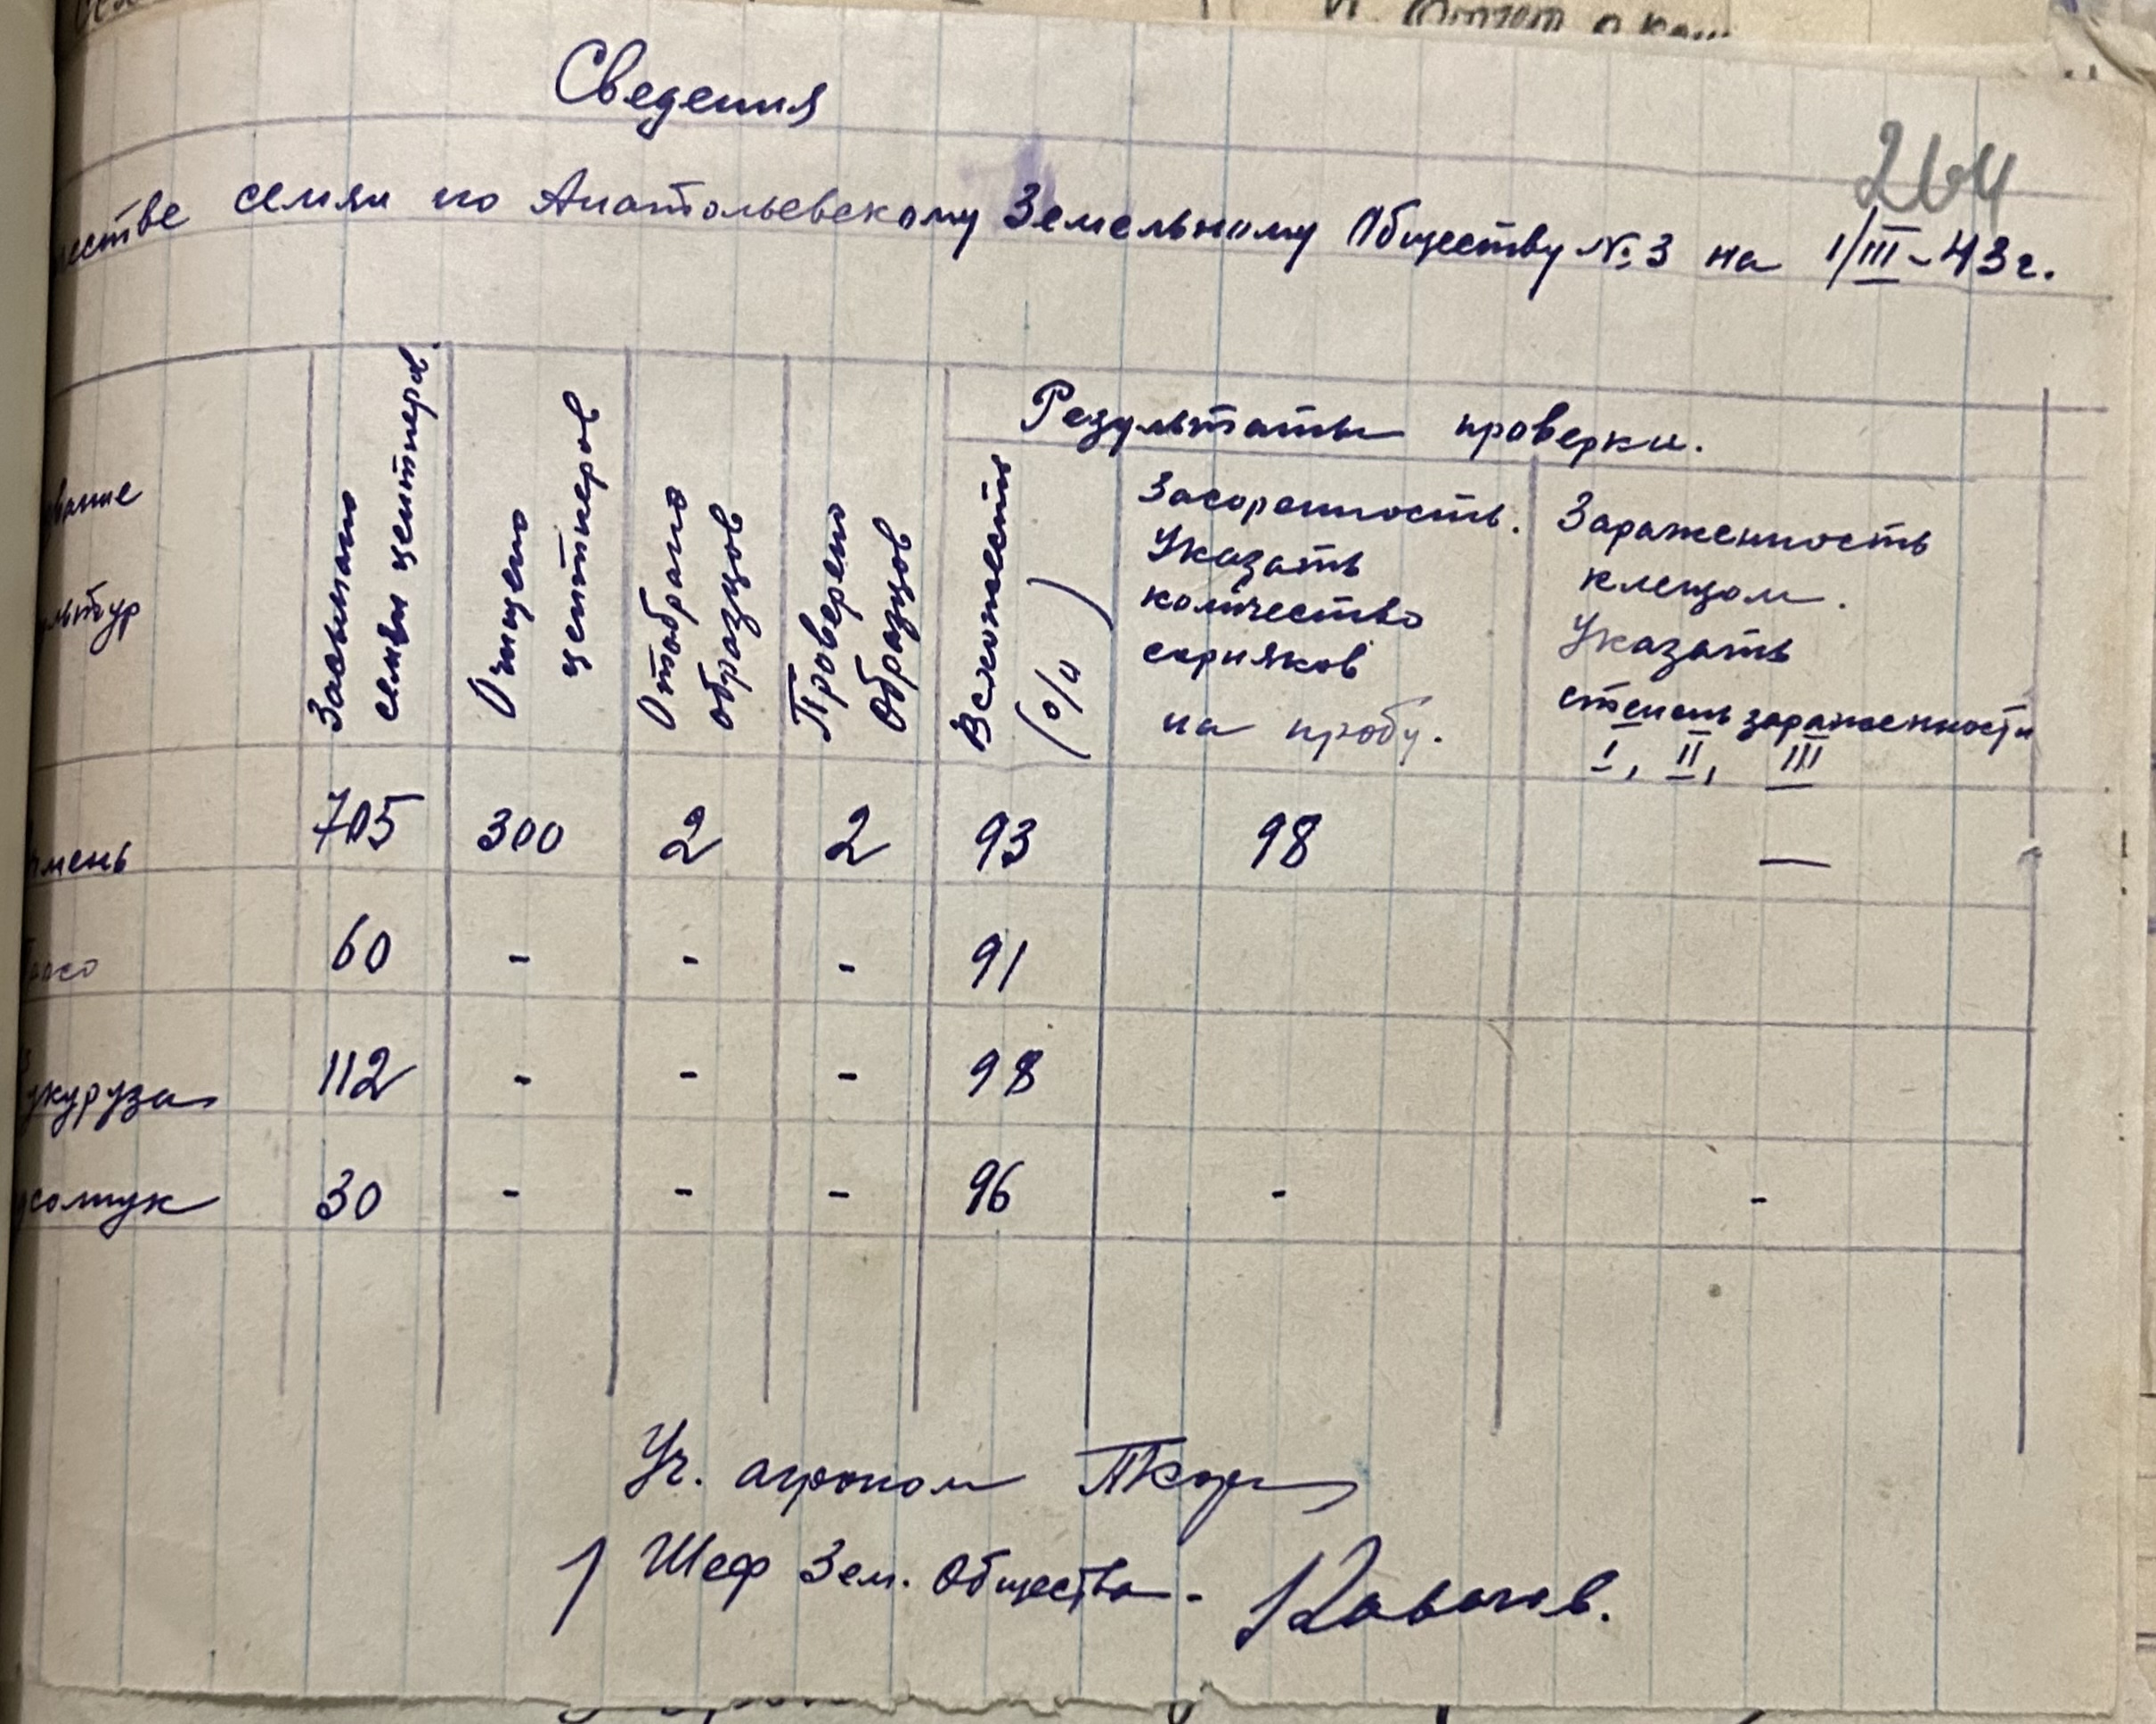 Сведения
264
честве семян по Анатольевскому Земельному Обществу № 3 на 1/III-43г.
вание
льтур
Засыпано
семян центнеров.
Очищено
центнеров
Отобрано
образцов
Проверено
Образцов
Результаты проверки.
Всхожесть
(%)
Засоренность.
Указать
количество
сорняков
на пробу.
Зараженность
клещом.
Указать
степень зараженности
I, II, III
чмень 705 300 2 2 93 98 —
росо 60 - - - 91
укуруза 112 - - - 98
30 - - - 96 - -
Уч. агроном
Шеф Зем. Общества -